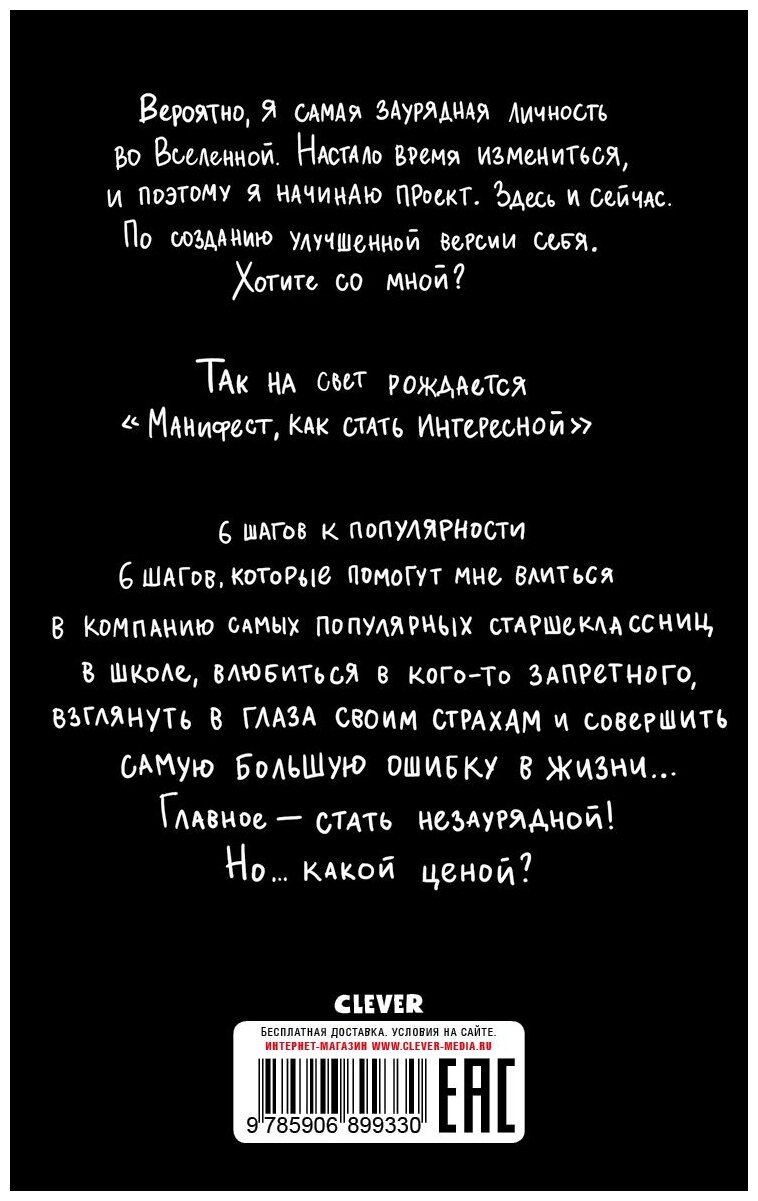 Вероятно, я самая заурядная личность
во Вселенной. Настало время измениться,
и поэтому я начинаю проект. Здесь и сейчас.
По созданию улучшенной версии себя.
Хотите со мной?
Так на свет рождается
«Манифест, как стать интересной»
6 шагов к популярности
6 шагов, которые помогут мне влиться
в компанию самых популярных старшеклассниц
в школе, влюбиться в кого-то запретного,
взглянуть в глаза своим страхам и совершить
самую большую ошибку в жизни...
Главное — стать незаурядной!
Но... какой ценой?
CLEVER
БЕСПЛАТНАЯ ДОСТАВКА. УСЛОВИЯ НА САЙТЕ.
ИНТЕРНЕТ-МАГАЗИН WWW.CLEVER-MEDIA.RU
9 785906 899330
EAC